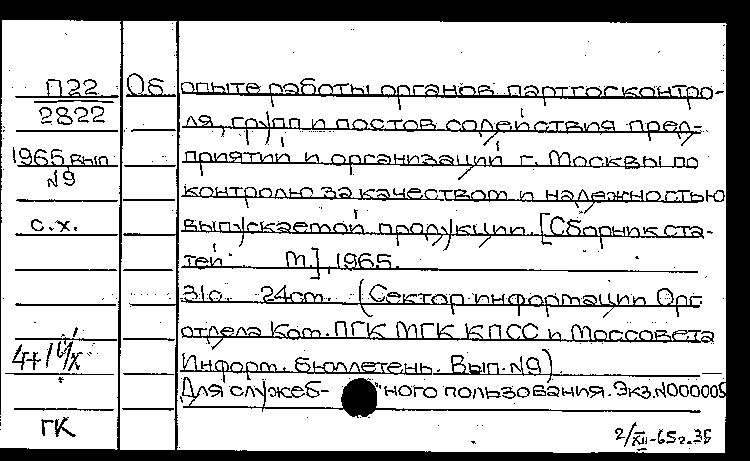 П22 Об опыте работы органов партгосконтро-
2822 ля, групп и постов содействия пред-
1965, вып приятий и организаций г. Москвы по
№9 контролю за качеством и надежностью
с.х. выпускаемой продукции. [Сборник ста-
тей М.], 1965.
31с. 24cm. (Сектор информации Орг
отдела Ком. ПГК МГК КПСС и Моссовета
Информ. бюллетень. Вып. №9).
Для служеб-ного пользования. Экз.№000005
ГК 2/XII-65г.